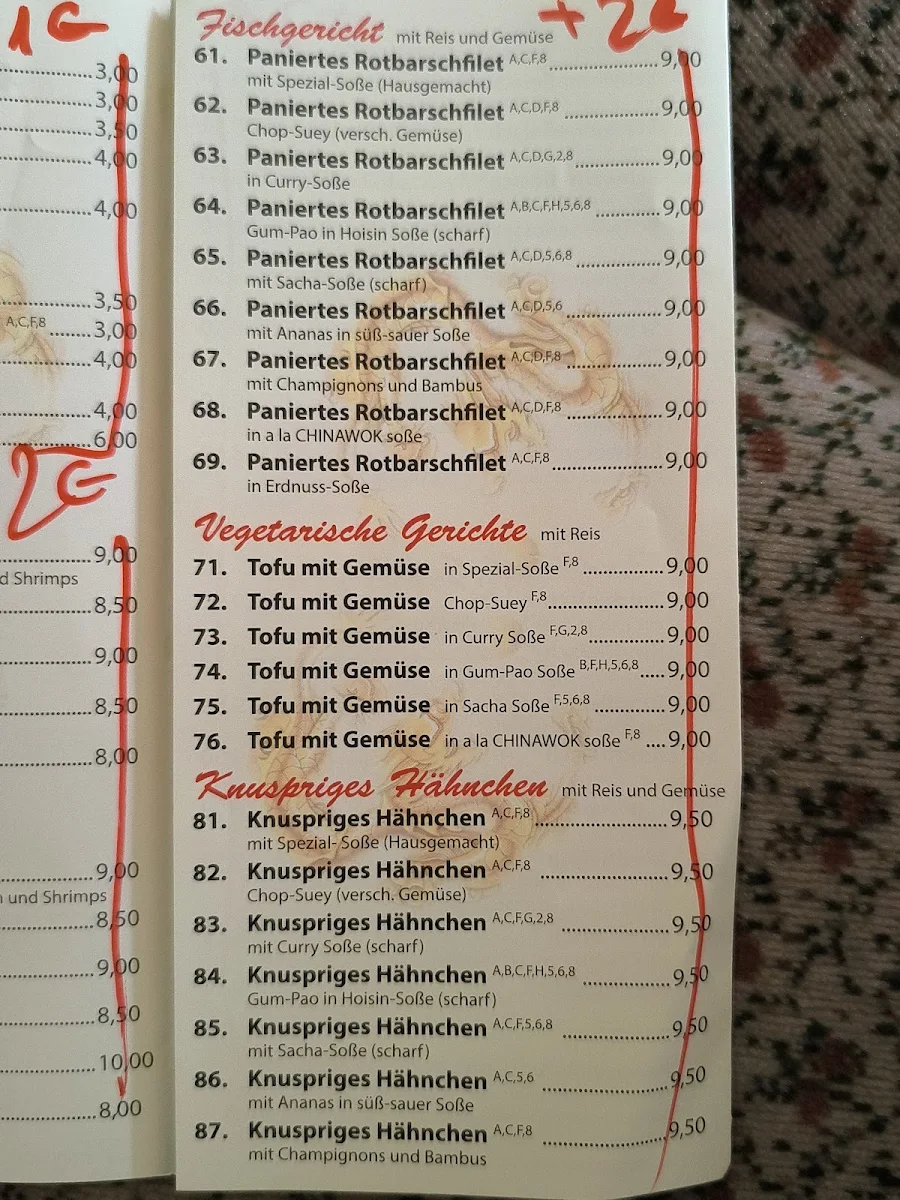 1€
3,00
3,00
3,50
4,00
4,00
3,50
A,C,F,8 3,00
4,00
4,00
6,00
2€
9,00
d Shrimps
8,50
9,00
8,50
8,00
9,00
und Shrimps
8,50
9,00
8,50
10,00
8,00
+2€
Fischgericht mit Reis und Gemüse
61. Paniertes Rotbarschfilet A,C,F,8 9,00
mit Spezial-Soße (Hausgemacht)
62. Paniertes Rotbarschfilet A,C,D,F,8 9,00
Chop-Suey (versch. Gemüse)
63. Paniertes Rotbarschfilet A,C,D,G,2,8 9,00
in Curry-Soße
64. Paniertes Rotbarschfilet A,B,C,F,H,5,6,8 9,00
Gum-Pao in Hoisin Soße (scharf)
65. Paniertes Rotbarschfilet A,C,D,5,6,8 9,00
mit Sacha-Soße (scharf)
66. Paniertes Rotbarschfilet A,C,D,5,6 9,00
mit Ananas in süß-sauer Soße
67. Paniertes Rotbarschfilet A,C,D,F,8 9,00
mit Champignons und Bambus
68. Paniertes Rotbarschfilet A,C,D,F,8 9,00
in a la CHINAWOK soße
69. Paniertes Rotbarschfilet A,C,F,8 9,00
in Erdnuss-Soße
Vegetarische Gerichte mit Reis
71. Tofu mit Gemüse in Spezial-Soße F,8 9,00
72. Tofu mit Gemüse Chop-Suey F,8 9,00
73. Tofu mit Gemüse in Curry Soße F,G,2,8 9,00
74. Tofu mit Gemüse in Gum-Pao Soße B,F,H,5,6,8 9,00
75. Tofu mit Gemüse in Sacha Soße F,5,6,8 9,00
76. Tofu mit Gemüse in a la CHINAWOK soße F,8 9,00
Knuspriges Hähnchen mit Reis und Gemüse
81. Knuspriges Hähnchen A,C,F,8 9,50
mit Spezial- Soße (Hausgemacht)
82. Knuspriges Hähnchen A,C,F,8 9,50
Chop-Suey (versch. Gemüse)
83. Knuspriges Hähnchen A,C,F,G,2,8 9,50
mit Curry Soße (scharf)
84. Knuspriges Hähnchen A,B,C,F,H,5,6,8 9,50
Gum-Pao in Hoisin-Soße (scharf)
85. Knuspriges Hähnchen A,C,F,5,6,8 9,50
mit Sacha-Soße (scharf)
86. Knuspriges Hähnchen A,C,5,6 9,50
mit Ananas in süß-sauer Soße
87. Knuspriges Hähnchen A,C,F,8 9,50
mit Champignons und Bambus